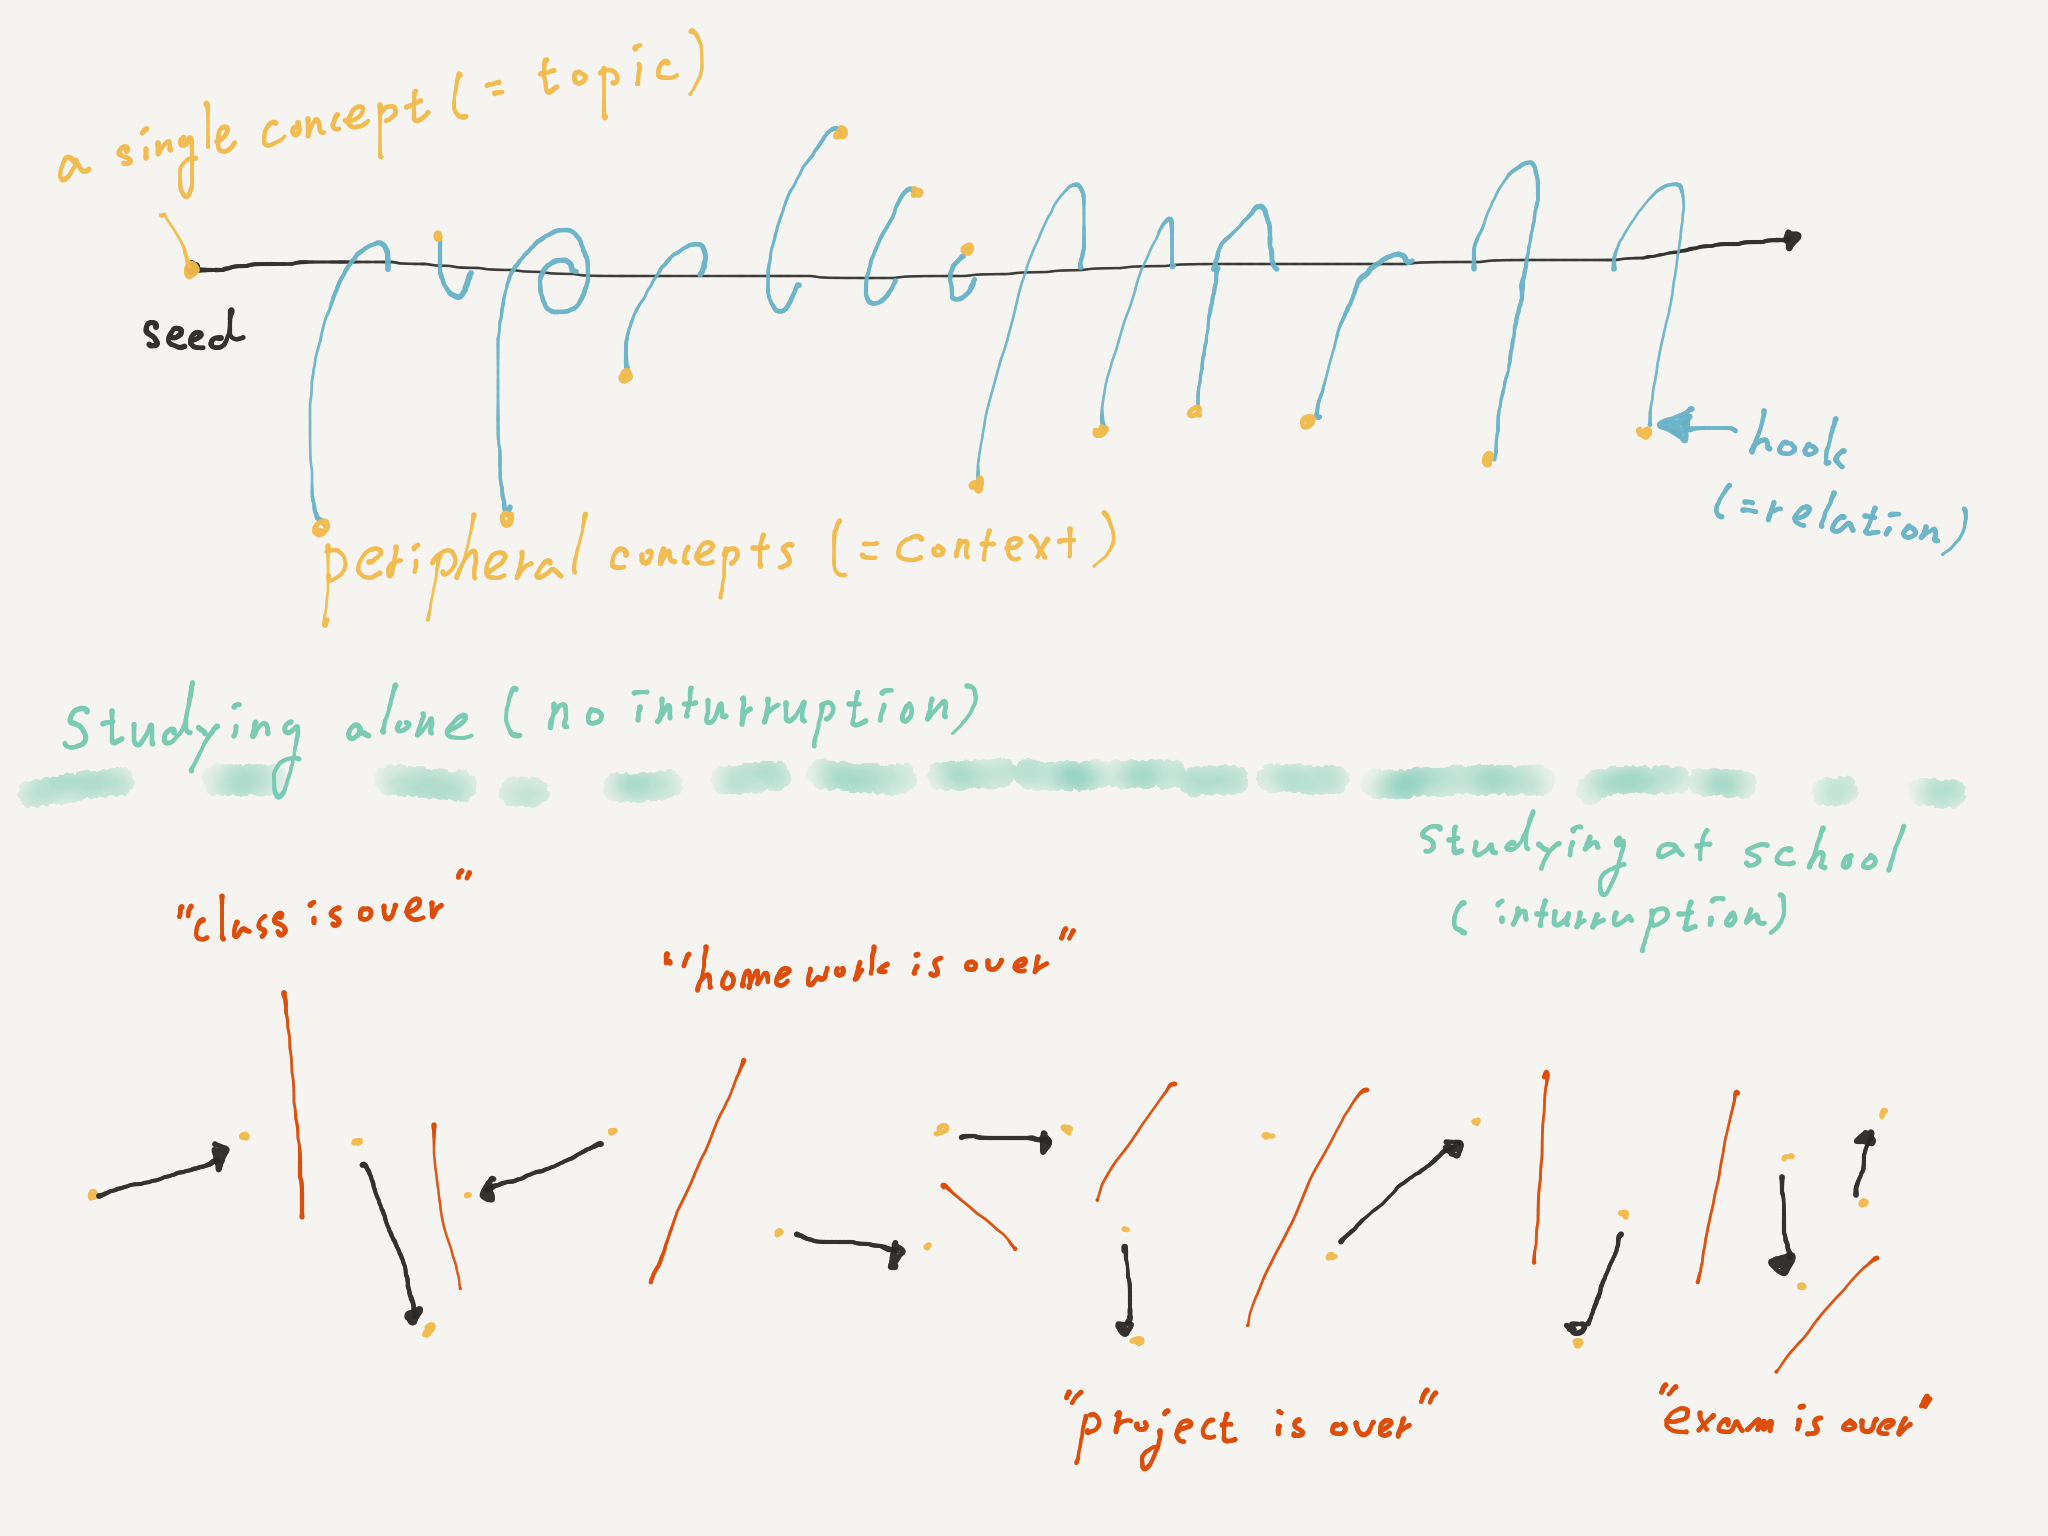 a single concept (= topic)
seed
hook
(=relation)
peripheral concepts (=context)
Studying alone (no inturruption)
studying at school
(inturruption)
"class is over"
"homework is over"
"project is over"
"exam is over"